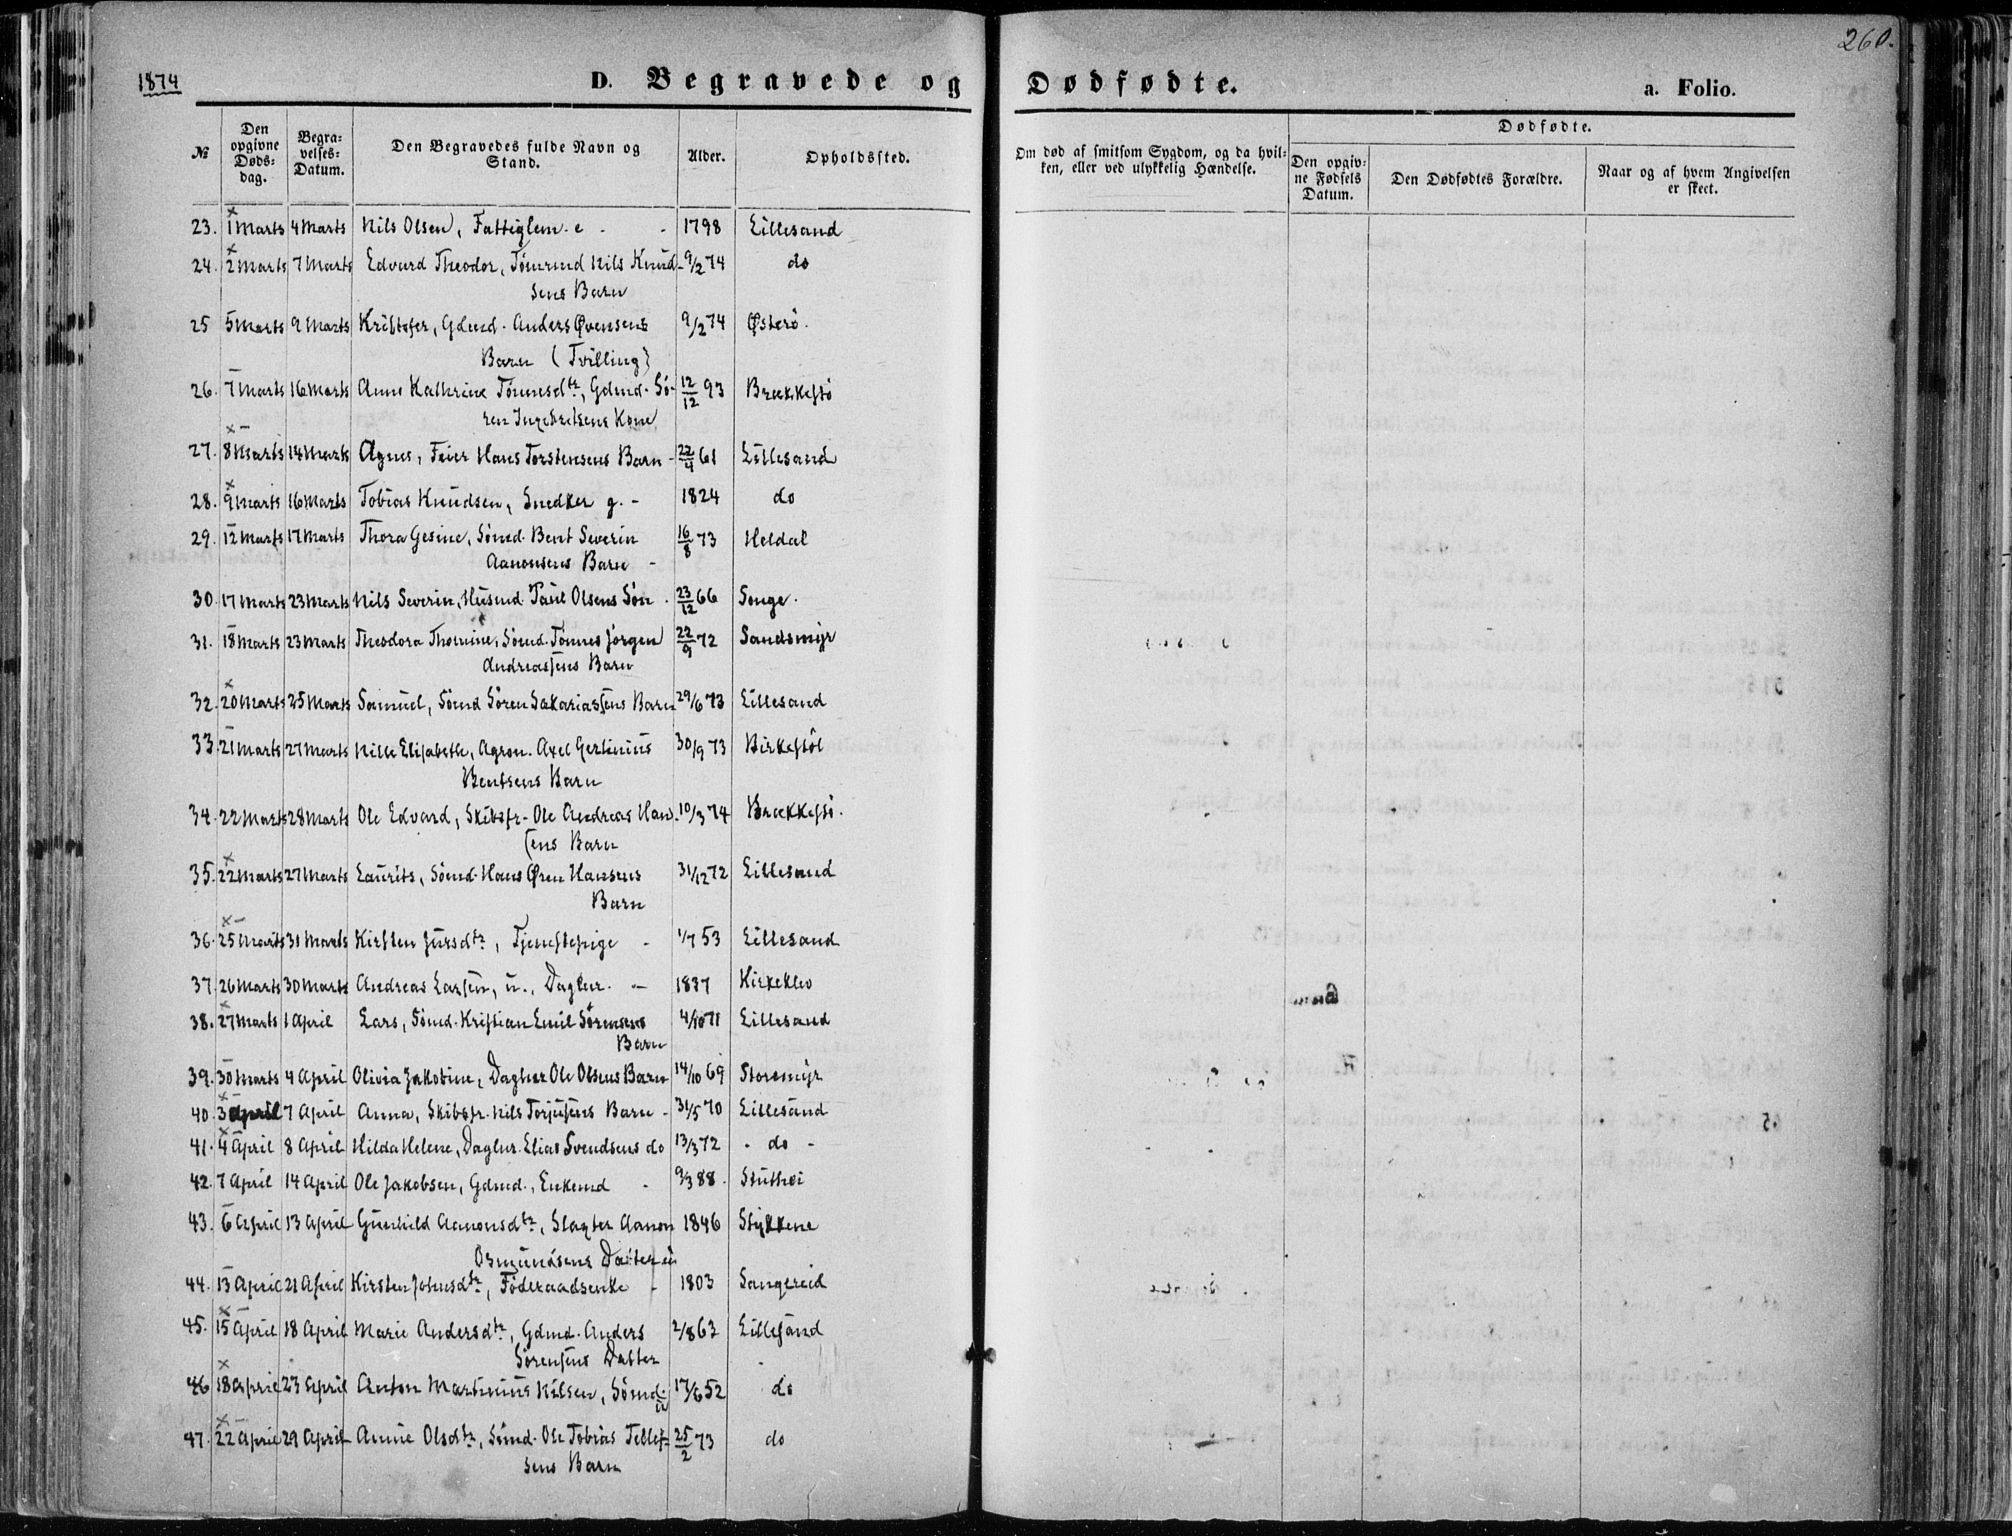 260.
1874 D. Begravede og Dødfødte. a. Folio.
№ Den opgivne Døds-dag. Begra-velses-Datum. Den Begravedes fulde Navn og Stand. Alder. Opholdssted. Om død af smitsom Sygdom, og da hvil-ken, eller ved ulykkelig Hændelse. Dødfødte. Den opgiv-ne Fødsels Datum. Den Dødfødtes Forældre. Naar og af hvem Angivelsen er skeet.
23. 1 Marts 4 Marts Nils Olsen, Fattiglem. e - - 1798 Lillesand
24. 2 Marts 7 Marts Edvard Theodor, Tömmd Nils Knud- 9/2 74 do
sens Barn
25 5 Marts 9 Marts Kristofer, Gdmd. Anders Øvensens 9/2 74 Østerö.
Barn (Tvilling)
26. 7 Marts 16 Marts Anne Kathrine Tönnesdtr, Gdmd. Sö- 12/12 93 Brækkestö
ren Ingebretsens Kone
27. 8 Marts 14 Marts Agnes, Feier Hans Torstensens Barn - 22/4 61 Lillesand
28. 9 Marts 16 Marts Tobias Knudsen, Snedker g. - 1824 do
29. 12 Marts 17 Marts Thora Gesine, Sömd. Bent Severin 16/8 73 Heldal
Aanonsens Barn -
30. 17 Marts 23 Marts Nils Severin, Husmd. Paul Olsens Sön . 23/12 66 Songe.
31. 18 Marts 23 Marts Theodora Thomine, Sömd. Tönnes Jörgen 22/9 72 Sandsmyr
Andreassens Barn
32. 20 Marts 25 Marts Samuel, Sömd Sören Sakariassens Barn 29/6 73 Lillesand
33. 21 Marts 27 Marts Nille Elisabeth, Agron. Axel Gertinius 30/9 73 Birkestöl
Bentsens Barn
34. 22 Marts 28 Marts Ole Edvard, Skibsfr. Ole Andreas Han- 10/3 74 Brækkestö.
sens Barn
35. 22 Marts 27 Marts Laurits, Sömd. Hans Øren Hansens 31/12 72 Lillesand
Barn
36. 25 Marts 31 Marts Kirsten Jursdtr, Tjenestepige - 1/7 53 Lillesand
37. 26 Marts 30 Marts Andreas Larsen, u., Daglnr. - 1837 Kirkeklev
38. 27 Marts 1 April Lars, Sömd. Kristian Emil Sörensens 4/10 71 Lillesand
Barn
39. 30 Marts 4 April Olivia Jakobine, Daglnr Ole Olsens Barn 14/10 69 Storemyr
40. 3 April 7 April Anna, Skibsfr. Nils Torjusens Barn - 31/5 70 Lillesand
41. 4 April 8 April Hilda Helene, Daglnr. Elias Svendsens do 13/3 72 - do -
42. 7 April 14 April Ole Jakobsen, Gdmd., Enkemd - 9/3 88. Stuthei
43. 6 April 13 April Gunhild Aanonsdtr, Slagter Aanon 1846 Stykkene
Osmundsens Datter u
44. 13 April 21 April Kirsten Johnsdtr, Föderaadsenke - 1803 Sangereid
45. 15 April 18 April Marie Andersdtr, Gdmd. Anders 2/8 63 Lillesand
Sörensens Datter
46 18 April 23 April Anton Martinius Nilsen, Sömd. u 17/6 52 do
47. 22 April 29 April Annie Olsdtr, Sömd. Ole Tobias Tellef- 25/2 73 do
sens Barn